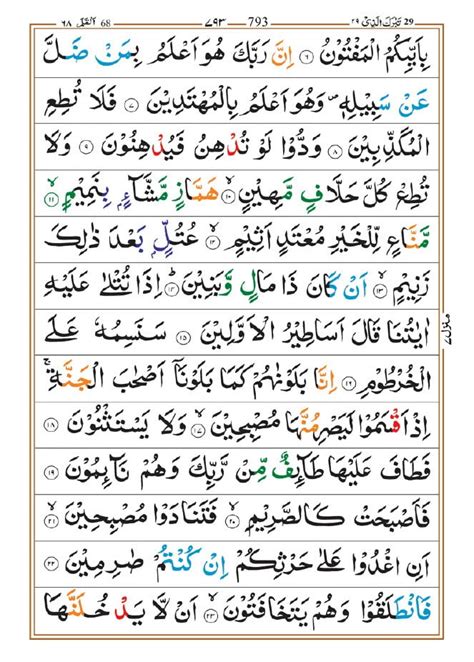 ٦٨ اَلْقَلَم 68 ٧٩٣ 793 ٢٩ تَبٰرَكَ الَّذِيْ 29
بِاَيِّكُمُ الْمَفْتُوْنُ ﴿٦﴾ اِنَّ رَبَّكَ هُوَ اَعْلَمُ بِمَنْ ضَلَّ
عَنْ سَبِيْلِهٖ ۪ وَهُوَ اَعْلَمُ بِالْمُهْتَدِيْنَ ﴿٧﴾ فَلَا تُطِعِ
الْمُكَذِّبِيْنَ ﴿٨﴾ وَدُّوْا لَوْ تُدْهِنُ فَيُدْهِنُوْنَ ﴿٩﴾ وَلَا
تُطِعْ كُلَّ حَلَّافٍ مَّهِيْنٍ ﴿١٠﴾ هَمَّازٍ مَّشَّآءٍۭ بِنَمِيْمٍ ﴿١١﴾
مَّنَّاعٍ لِّلْخَيْرِ مُعْتَدٍ اَثِيْمٍ ﴿١٢﴾ عُتُلٍّۭ بَعْدَ ذٰلِكَ
زَنِيْمٍ ﴿١٣﴾ اَنْ كَانَ ذَا مَالٍ وَّبَنِيْنَ ﴿١٤﴾ اِذَا تُتْلٰى عَلَيْهِ
اٰيٰتُنَا قَالَ اَسَاطِيْرُ الْاَوَّلِيْنَ ﴿١٥﴾ سَنَسِمُهٗ عَلَى
الْخُرْطُوْمِ ﴿١٦﴾ اِنَّا بَلَوْنٰهُمْ كَمَا بَلَوْنَاۤ اَصْحٰبَ الْجَنَّةِ ۚ
اِذْ اَقْسَمُوْا لَيَصْرِمُنَّهَا مُصْبِحِيْنَ ﴿١٧﴾ وَلَا يَسْتَثْنُوْنَ ﴿١٨﴾
فَطَافَ عَلَيْهَا طَآئِفٌ مِّنْ رَّبِّكَ وَهُمْ نَآئِمُوْنَ ﴿١٩﴾
فَاَصْبَحَتْ كَالصَّرِيْمِ ﴿٢٠﴾ فَتَنَادَوْا مُصْبِحِيْنَ ﴿٢١﴾
اَنِ اغْدُوْا عَلٰى حَرْثِكُمْ اِنْ كُنْتُمْ صٰرِمِيْنَ ﴿٢٢﴾
فَانْطَلَقُوْا وَهُمْ يَتَخَافَتُوْنَ ﴿٢٣﴾ اَنْ لَّا يَدْخُلَنَّهَا
منزل٧